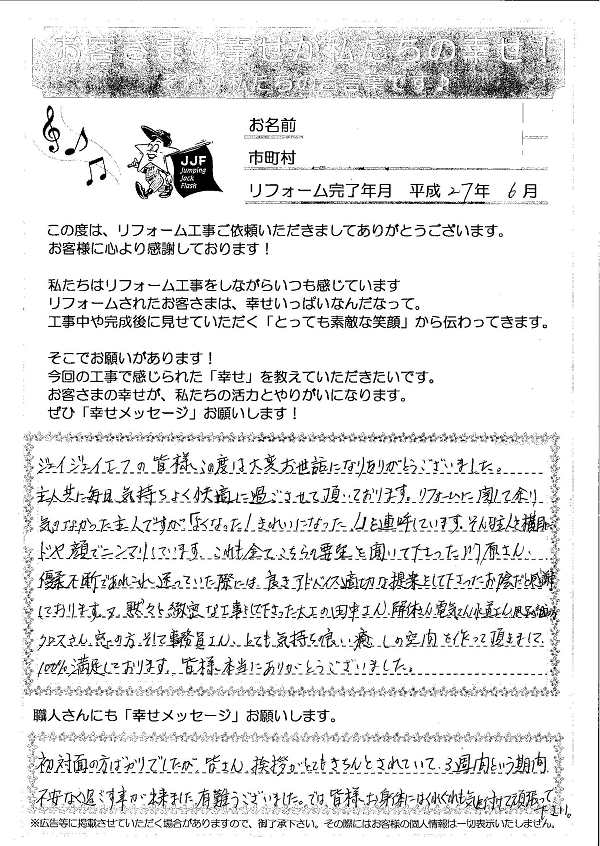 お客さまの幸せが私たちの幸せ！
それが私たちの合言葉です♪
JJF
Jumping
Jack
Flash
お名前
市町村
リフォーム完了年月 平成 27年 6月
この度は、リフォーム工事ご依頼いただきましてありがとうございます。
お客様に心より感謝しております！
私たちはリフォーム工事をしながらいつも感じています
リフォームされたお客さまは、幸せいっぱいなんだなって。
工事中や完成後に見せていただく「とっても素敵な笑顔」から伝わってきます。
そこでお願いがあります！
今回の工事で感じられた「幸せ」を教えていただきたいです。
お客さまの幸せが、私たちの活力とやりがいになります。
ぜひ「幸せメッセージ」お願いします！
ジェイジェイエフの皆様この度は大変お世話になりありがとうございました。
主人共に毎日気持ちよく快適に過ごさせて頂いております。リフォームに関して余り
気のなかった主人ですが「広くなった！きれいになった！」と連呼しています。そんな主人を横目に
ドヤ顔でニンマリしています。これも全てこちらの要望を聞いて下さった川原さん、
優柔不断であれこれ迷っていた際には良きアドバイス適切な提案をして下さったお陰だと感謝
しております。又、黙々と緻密な工事をして下さった大工の田中さん、解体さん電気さん水道さん
クロスさん、窓の方、そして事務員さん、とても気持ち良い癒しの空間を作って頂きまして
100%満足しております。皆様本当にありがとうございました。
職人さんにも「幸せメッセージ」お願いします。
初対面の方ばかりでしたが、皆さん、挨拶がとてもきちんとされていて、3週間という期間
不安なく過ごす事が出来ました。有難うございました。では、皆様、お身体にはくれぐれも気を付けて頑張って
下さい。
※広告等に掲載させていただく場合がありますので、御了承下さい。その際にはお客様の個人情報は一切表示いたしません。